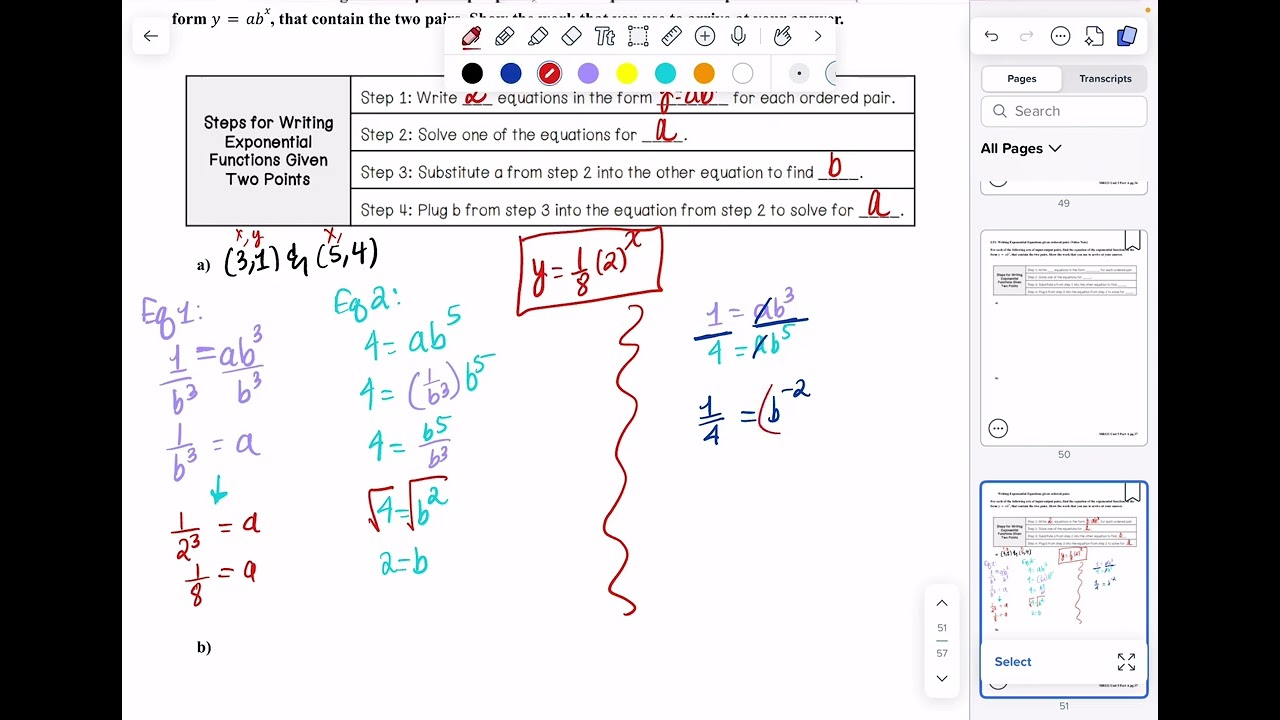 form y = abˣ, that contain the two pairs. Show the work that you use to arrive at your answer.
Steps for Writing
Exponential
Functions Given
Two Points
Step 1: Write 2 equations in the form y=abˣ for each ordered pair.
Step 2: Solve one of the equations for a.
Step 3: Substitute a from step 2 into the other equation to find b.
Step 4: Plug b from step 3 into the equation from step 2 to solve for a.
x, y
x,
a) (3,1) & (5,4)
y = 1/8 (2)ˣ
Eq 1:
1/b³ = ab³/b³
1/b³ = a
↓
1/2³ = a
1/8 = a
Eq 2:
4 = ab⁵
4 = (1/b³) b⁵
4 = b⁵/b³
√4 = √b²
2 = b
1 = ab³
4 = ab⁵
1/4 = (b⁻²
b)
Tt
51
57
Pages
Transcripts
Search
All Pages
49
50
Select
51